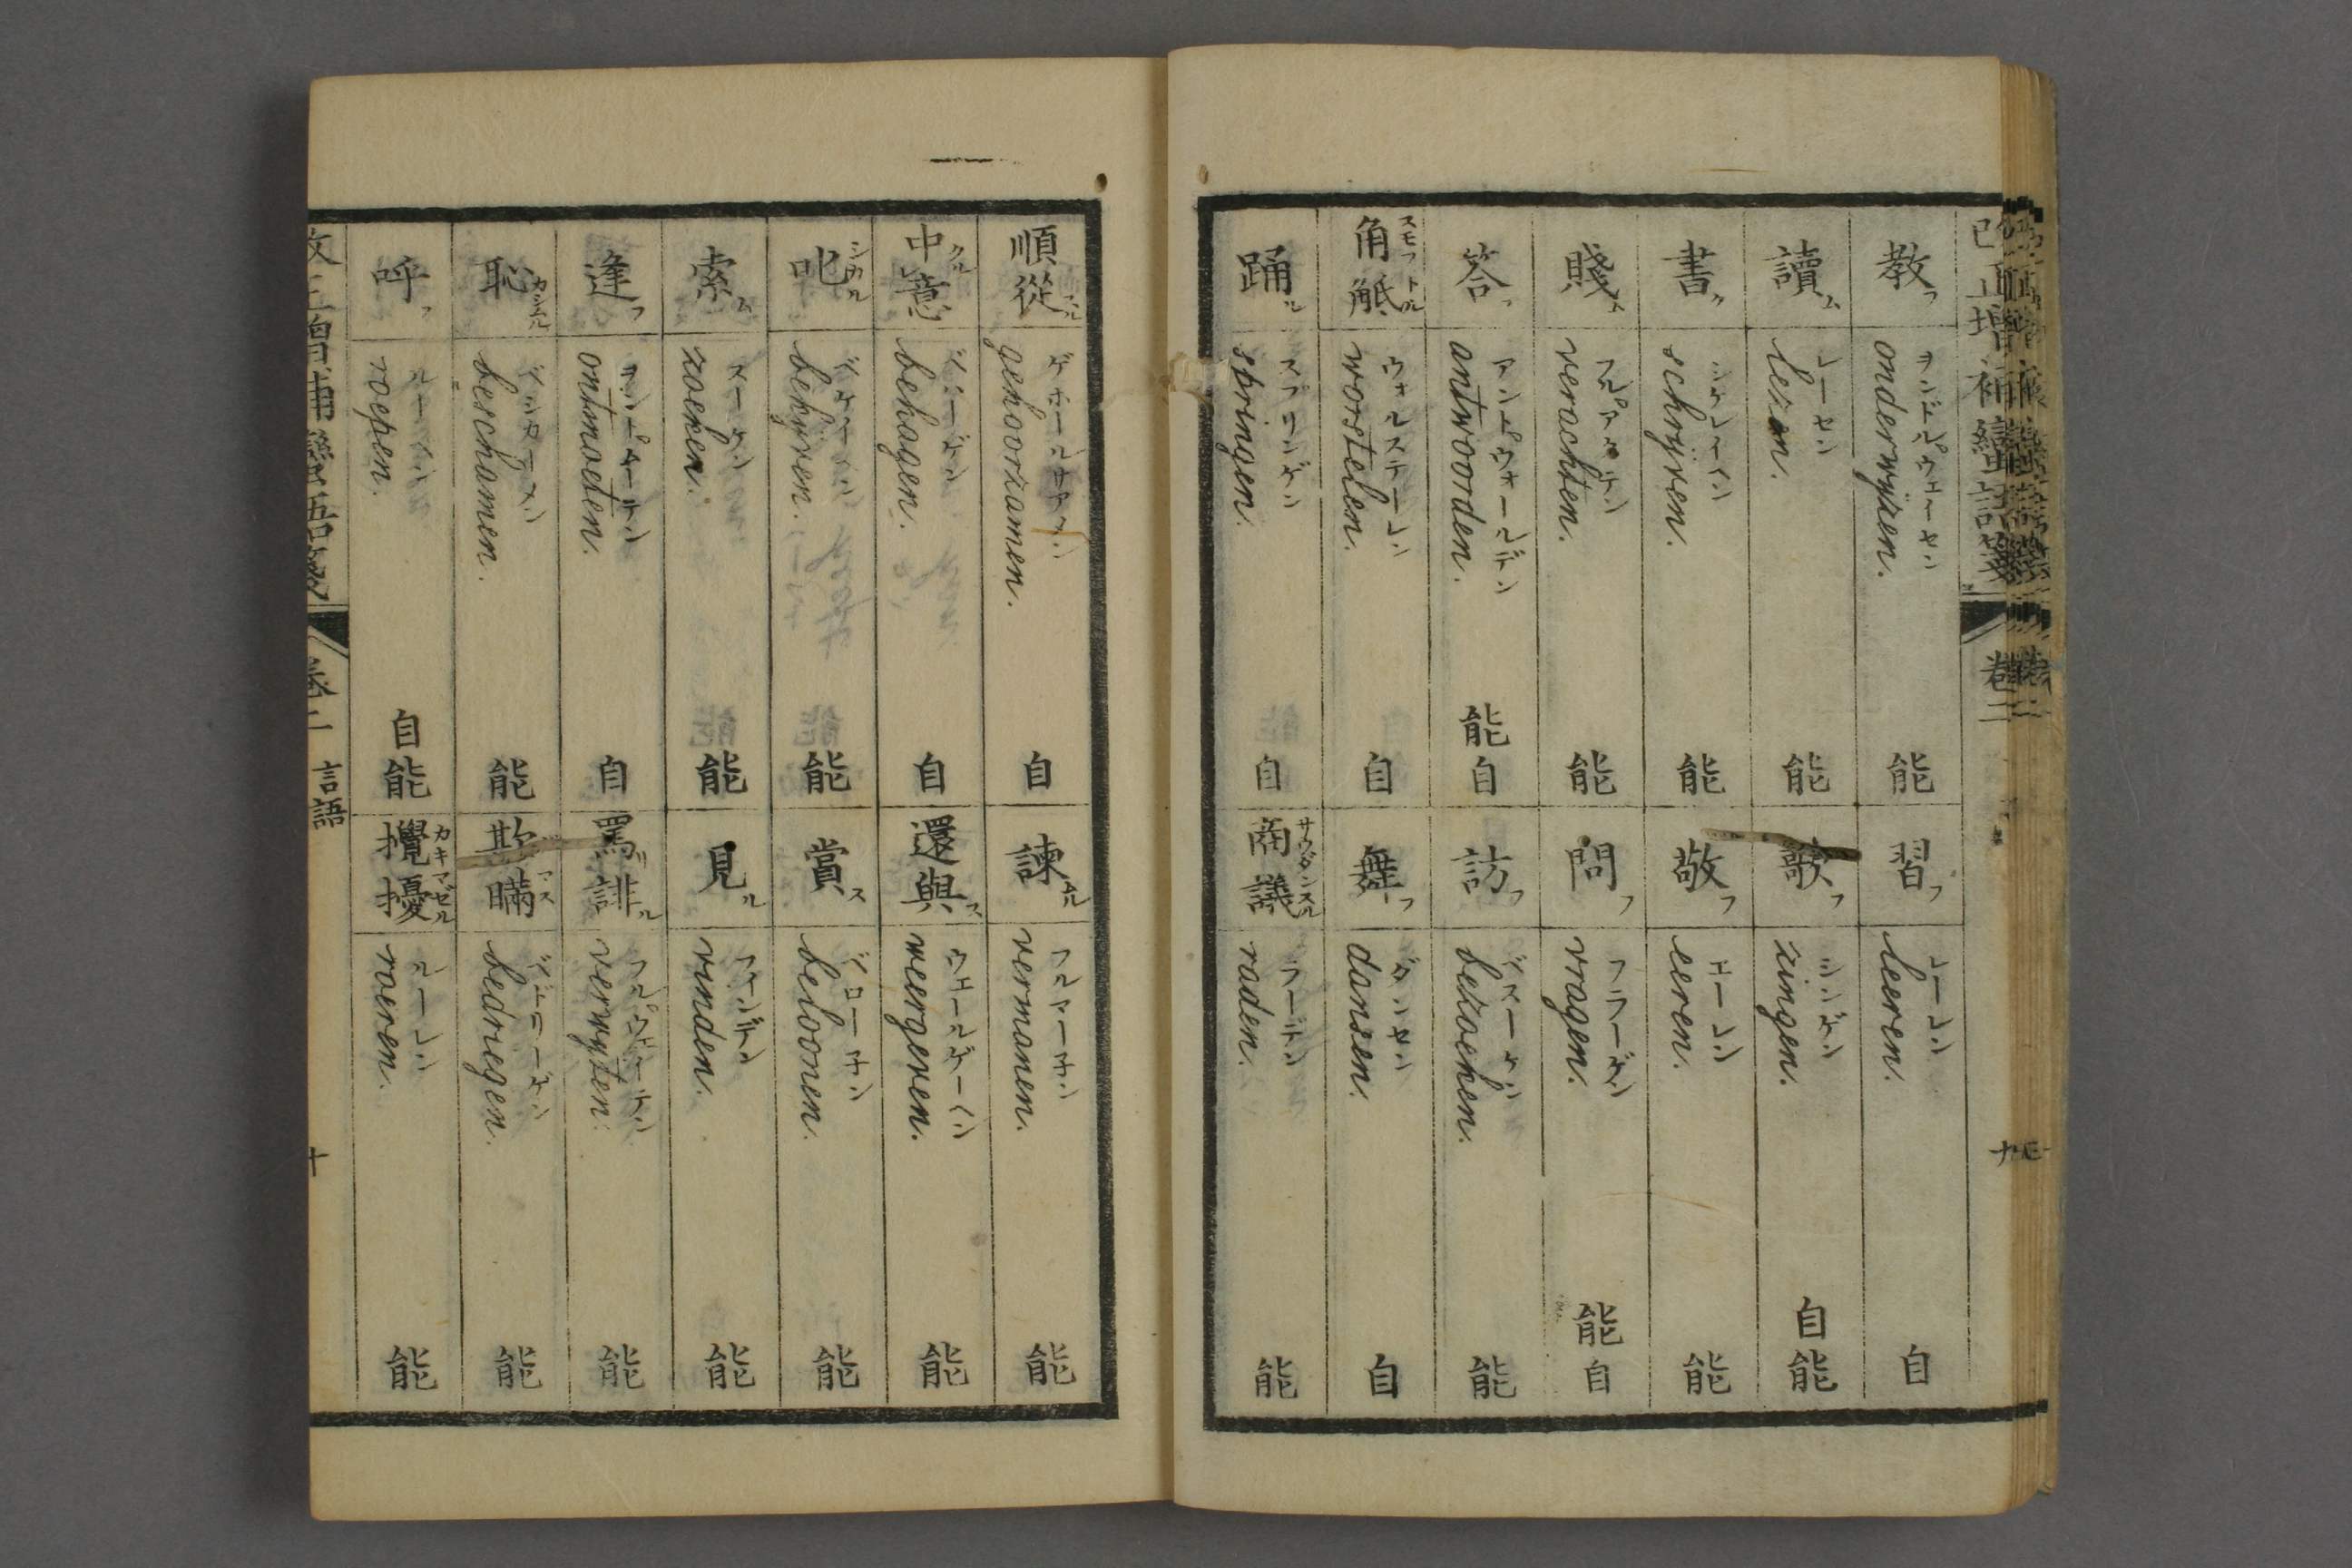 改正增補蠻語箋
卷二
九
教フ
ヲンドルウェーセン
onderwijzen.
能
習フ
レーレン
leeren.
自
讀ム
レーセン
lezen.
能
歌フ
シンゲン
zingen.
自能
書ク
schrijven.
能
敬フ
エーレン
eeren.
能
賤ム
verachten.
能
問フ
フラーゲン
vragen.
能自
答フ
antwoorden.
能自
訪フ
ベスーケン
bezoeken.
能
角觝
スモフトル
ウォルステーレン
worstelen.
自
舞フ
ダンセン
dansen.
自
踊ル
スプリンゲン
springen.
自
商議
サウダンスル
ラーデン
raden.
能
順從
ゲホールサアメン
gehoorzamen.
自
諫ムル
フルマーネン
vermanen.
能
中意
behagen.
自
還與ス
ウェールゲーヘン
weergeven.
能
叱
シカル
bekijven.
能
賞ス
ベローネン
beloonen.
能
索ム
スーケン
zoeken.
能
見ル
フィンデン
vinden.
能
逢フ
ontmoeten.
自
罵誹ル
verwyten.
能
恥
beschamen.
能
欺瞞
マス
ベドリーゲン
bedriegen.
能
呼フ
ルーペン
roepen.
自能
攪擾
カキマゼル
ルーレン
roeren.
能
改正增補蠻語箋
卷二
言語
十